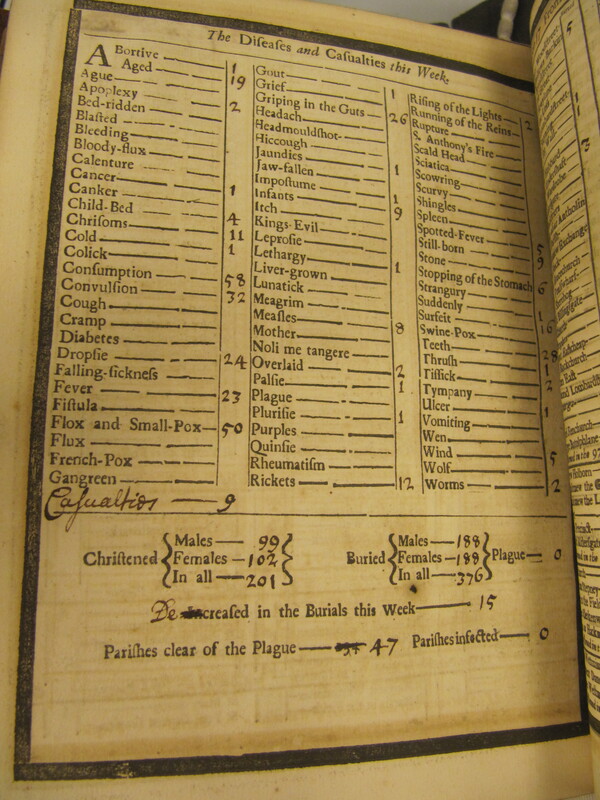 The Diſeaſes and Caſualties this Week.
Abortive 1
Aged 19
Ague
Apoplexy 2
Bed-ridden
Blaſted
Bleeding
Bloody-flux
Calenture
Cancer 1
Canker
Child-Bed 4
Chriſoms 11
Cold 1
Colick
Conſumption 58
Convulſion 32
Cough
Cramp
Diabetes
Dropſie 24
Falling-ſickneſs
Fever 23
Fiſtula
Flox and Small-Pox 50
Flux
French-Pox
Gangreen
Caſualties 9
Gout
Grief 1
Griping in the Guts 26
Headach
Headmouldſhot
Hiccough
Jaundies 1
Jaw-fallen
Impoſtume 1
Infants 9
Itch
Kings-Evil
Leproſie
Lethargy 1
Liver-grown
Lunatick
Meagrim
Meaſles 8
Mother
Noli me tangere
Overlaid 2
Palſie 1
Plague
Pluriſie 1
Purples
Quinſie
Rheumatiſm
Rickets 12
Riſing of the Lights 2
Running of the Reins
Rupture
S. Anthony's Fire
Scald Head
Sciatica
Scowring
Scurvy
Shingles
Spleen
Spotted-Fever 5
Still-born 9
Stone
Stopping of the Stomach 6
Strangury
Suddenly 1
Surfeit 16
Swine-Pox
Teeth 28
Thruſh 1
Tiſſick 2
Tympany
Ulcer 1
Vomiting
Wen
Wind 5
Wolf
Worms 2
Chriſtened Males 99 Females 102 In all 201
Buried Males 188 Females 188 In all 376 Plague 0
Decreaſed in the Burials this Week 15
Pariſhes clear of the Plague 47 Pariſhes infected 0